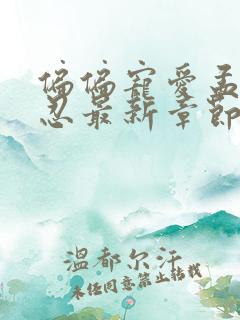 偏偏寵愛孟
忍最新章節
温都尔汗
未经同意禁止转载